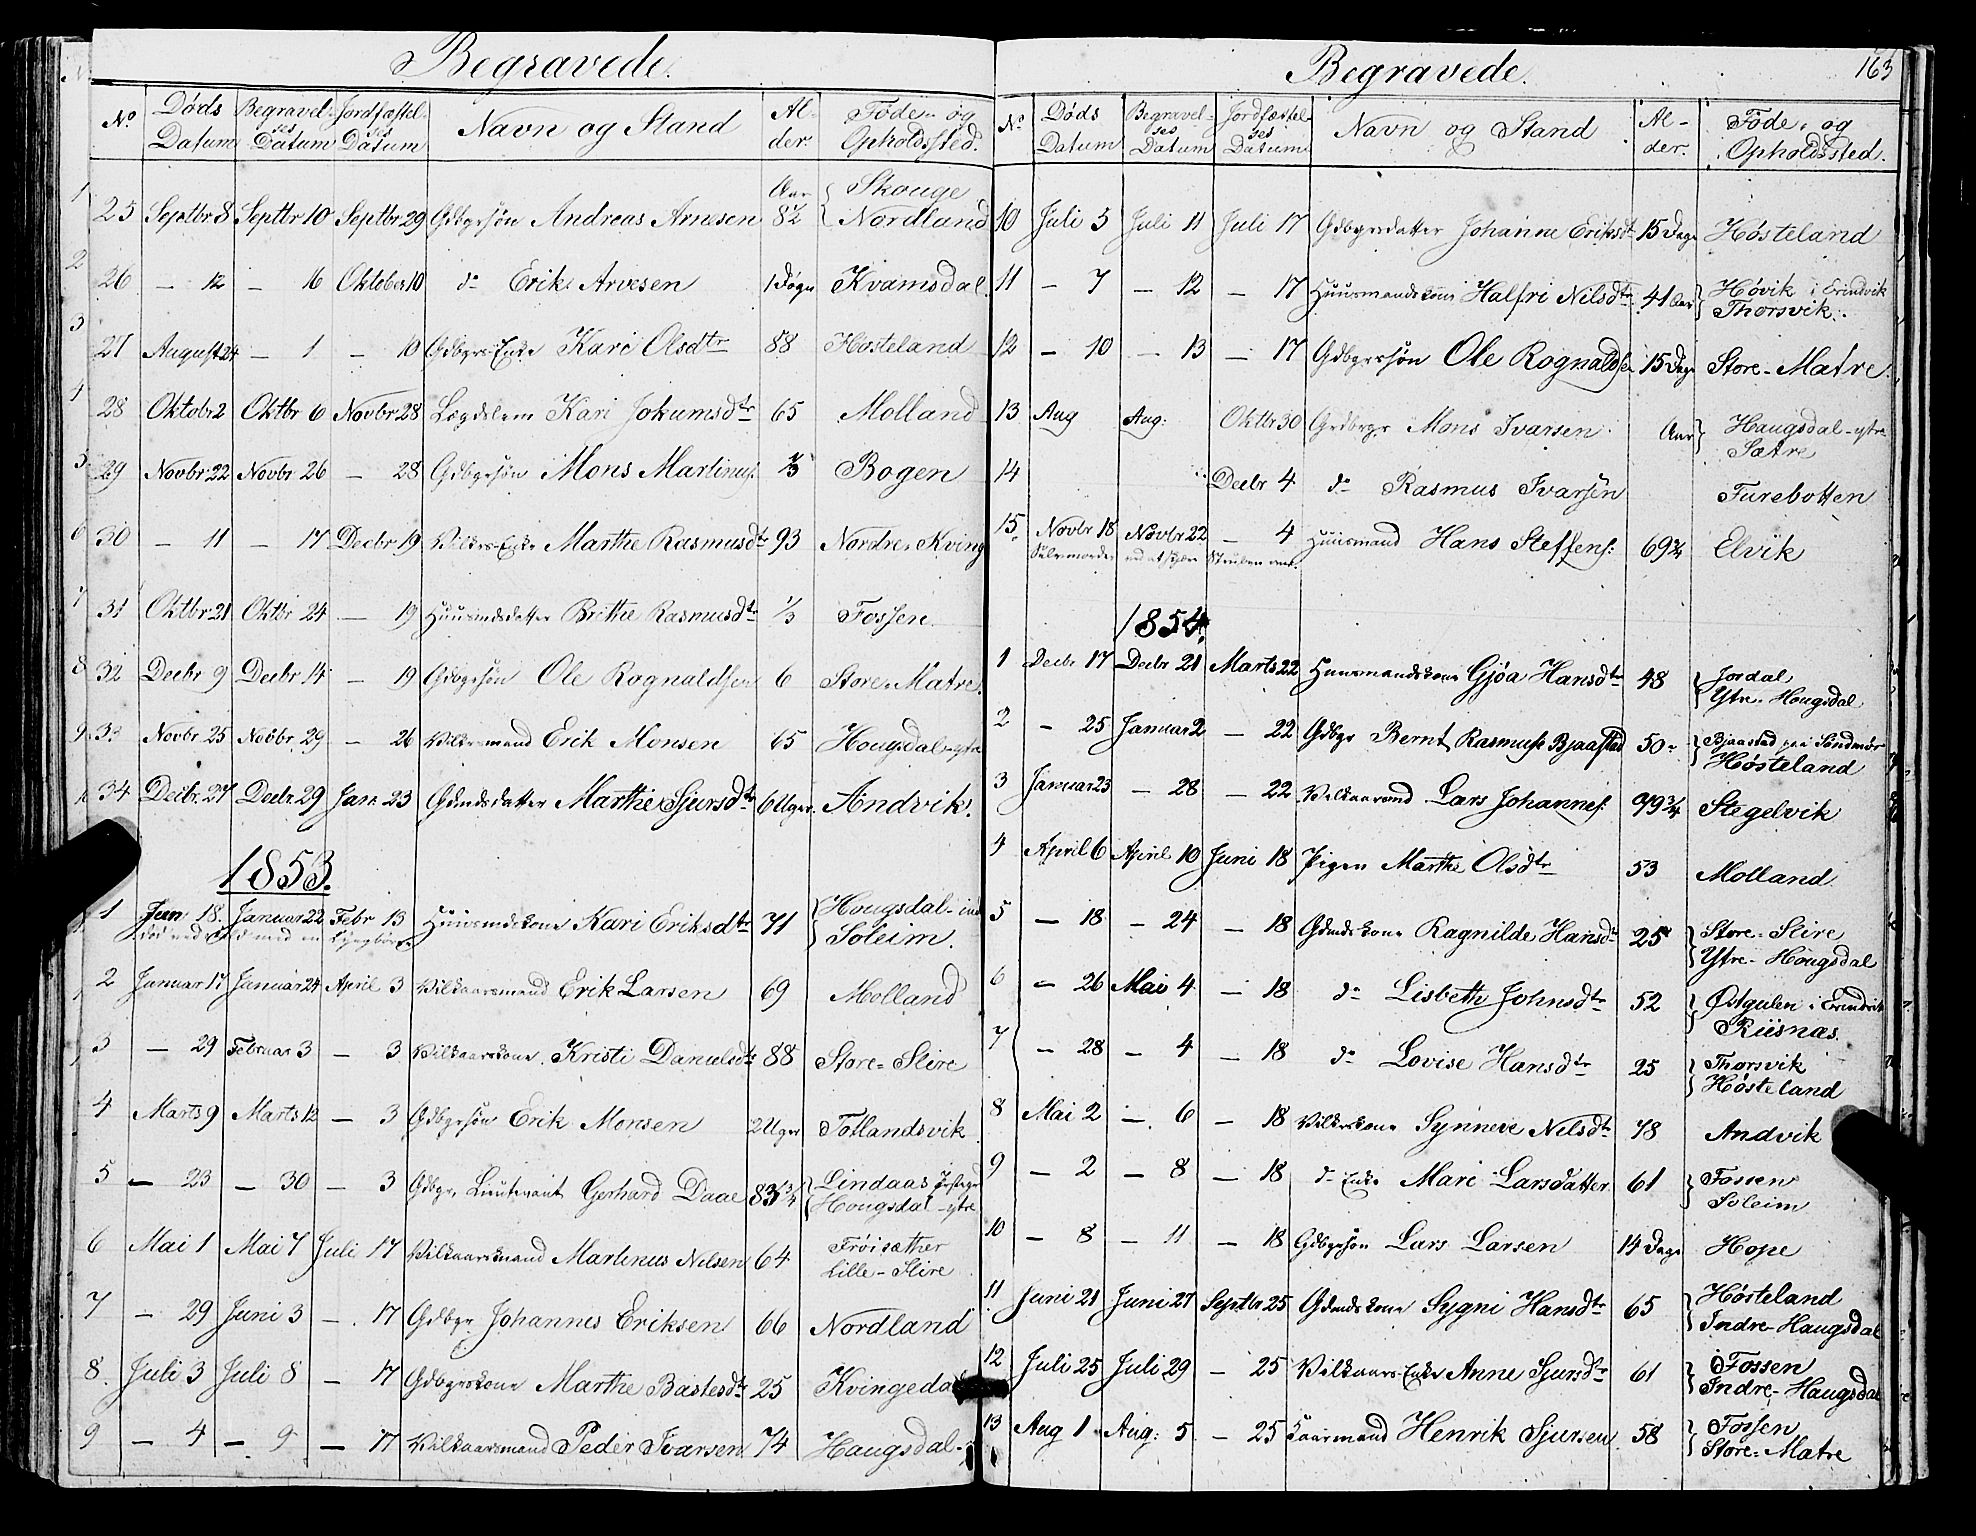 Begravede.
No Døds Datum Begravelses Datum Jordfæstelses Datum Navn og Stand Alder Føde- og Opholdssted.
25 Septbr 8 Septbr 10 Septbr 29 Gdbgrsön Andreas Arnesen Aar 82 Skouge Nordland
26 — 12 — 16 Oktober 10 do Erik Arnesen 1 Døgn Kvamsdal
27 August 24 — 1 — 10 Gdbgrs Enke Kari Olsdtr 88 Hosteland
28 Oktobr 2 Oktbr 6 Novbr 28 Lægdslem Kari Jokumsdtr 65 Molland
29 Novbr 22 Novbr 26 — 28 Gdbgrsön Mons Martinus: Bogen
30 — 11 — 17 Decbr 19 Vilkrs Enke Marthe Rasmusdtr 93 Nordre Kving
31 Oktbr 21 Oktbr 24 — 19 Huusmdsdatter Brithe Rasmusdtr 1/3 Fossen
32 Decbr 9 Decbr 14 — 19 Gdbgrsön Ole Rognaldsen 6 Store-Matre
33 Novbr 25 Novbr 29 — 26 Vilkrsmand Erik Monsen 65 Hougsdal-ytre
34 Decbr 27 Decbr 29 Jan 23 Gdmdsdatter Marthe Sjursdtr 6 Uger. Andvik.
1853.
1 Jan 18. Januar 22 Febr 13 Huusmdskone Kari Eriksdtr 71 Hougsdal-ind Soleim.
2 Januar 17 Januar 24 April 3 Vilkaarsmand Erik Larsen 69 Molland
3 — 29 Februar 3 — 3 Vilkaarskone Kristi Danielsdtr 88 Store-Stire
4 Marts 9 Marts 12 — 3 Gdbgrsön Erik Monsen 2 Uger Totlandsvik
5 — 23 — 30 — 3 Gdbgr. Lieutenant Gerhard Daae 83 3/4 Lindaas Præstegd Hougsdal-ytre
6 Mai 1 Mai 7 Juli 17 Vilkaarsmand Martinus Nilsen 64 Frøisæther Lille-Stire
7 — 29 Juni 3 — 17 Gdbgr Johannes Eriksen 66 Nordland
8. Juli 3 Juli 8 — 17 Gdbgrskone Marthe Bastesdtr 25 Kvingedal
9 — 4 — 9 — 17 Vilkaarsmand Peder Ivarsen 74 Haugsdal-
Begravede. 163
No Døds Datum Begravelses Datum Jordfæstelses Datum Navn og Stand Alder. Føde- og Opholdssted.
10 Juli 5 Juli 11 Juli 17 Gdbgrsdatter Johanne Eriksdtr 15 Dage Høsteland
11 — 7 — 12 — 17 Huusmandskone Halfri Nilsdtr 41 Aar Høvik i Evindvik Thorsvik.
12 — 10 — 13 — 17 Gdbgrsön Ole Rognaldsen 15 Dage Store-Matre
13 Aug Aug: Oktbr 30 Grdbrgr Mons Ivarsen Aar Haugsdal-ytre Sætre
14 Decbr 4 do Rasmus Ivarsen Furebotten
15. Novbr 18 Novbr 22 — 4 Huusmand Hans Steffens: 69 3/4 Elvik
Selvmorder ved at skjære Struben over.
1854.
1 Decbr 17 Decbr 21 Marts 22 Huusmandskone Gjøa Hansdtr 48 Jordal Ytre-Hougsdal
2 — 25 Januar 2 — 22 Gdbgr Bernt Rasmuss Bjaastad 50 Bjaastad paa Söndmør Høsteland
3 Januar 23 — 28 — 22 Vilkaarsmd Lars Johannes: 79 3/4 Stegelvik
4 April 6 April 10 Juni 18 Pigen Marthe Olsdtr 53 Molland
5 — 18 — 24 — 18 Gdmdskone Ragnilde Hansdtr 25 Store-Stire Ytre-Hougsdal
6 — 26 Mai 4 — 18 do Lisbeth Johnsdtr 52 Østgulen i Evindvik Riisnæs.
7 — 28 — 4 — 18 do Lovise Hansdtr 25 Thorsvik Høsteland
8 Mai 2 — 6 — 18 Vilkrskone Synneve Nilsdtr 78 Andvik
9 — 2 — 8 — 18 do Enke Mari Larsdatter 61 Fossen Soleim
10 — 8 — 11 — 18 Gdbgrsön Lars Larsen 14 Dage Hope
11 Juni 21 Juni 27 Septbr 25 Gdmdskone Sygni Hansdtr 65 Høsteland Indre-Haugsdal
12 Juli 25 Juli 29 — 25 Vilkaars-Enke Anne Sjursdtr 61 Fossen Indre-Haugsdal
13 Aug 1 Aug: 5 — 25 Kaarmand Henrik Sjursen 58 Fossen Store-Matre